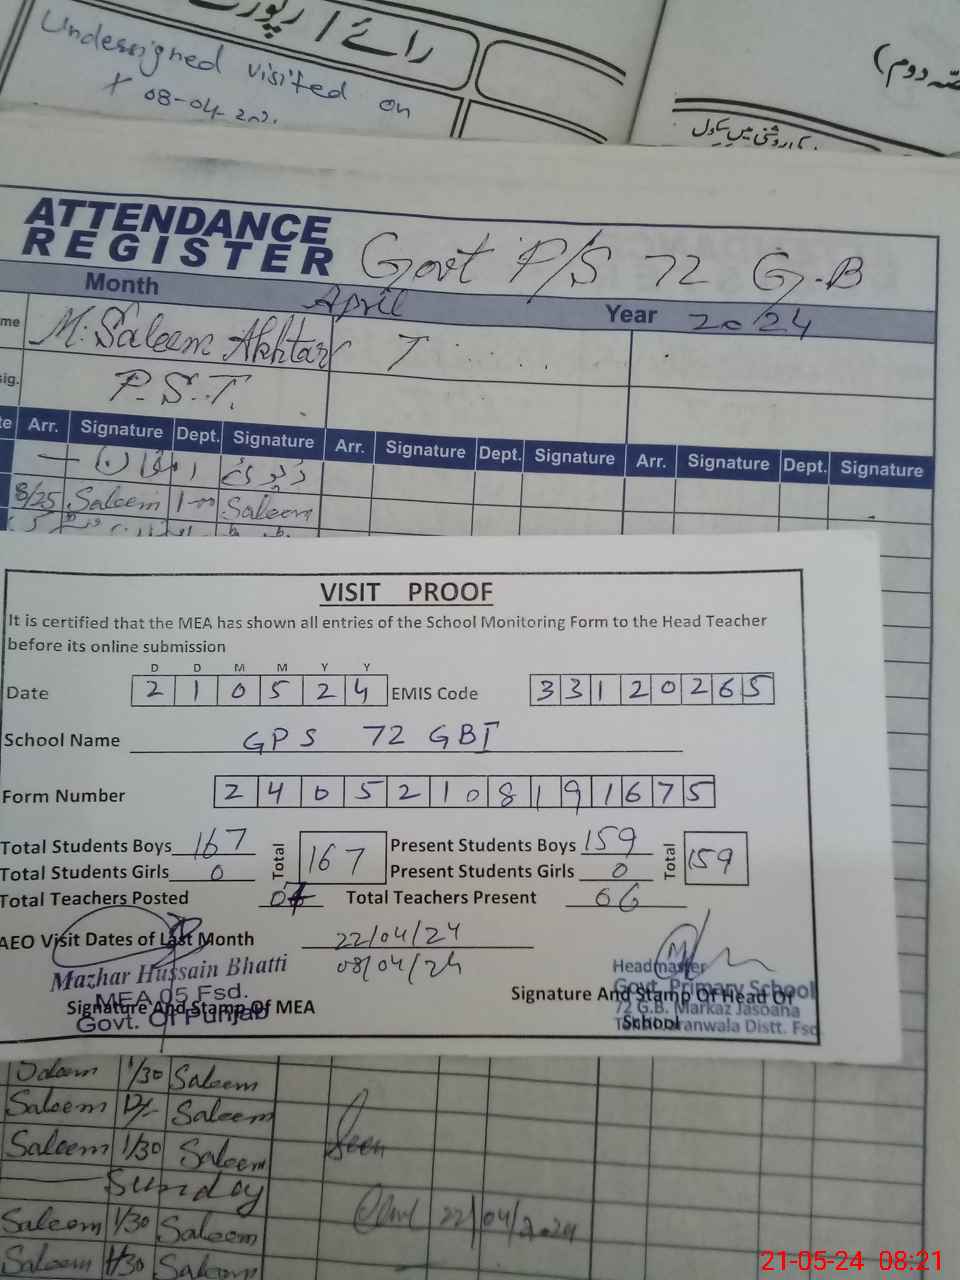 رائے / رپورٹ
Undersigned visited on
08-04-202
حصّہ دوم)
کی روشنی میں سکول
ATTENDANCE
REGISTER
Govt P/S 72 G.B
Month April Year 2024
me M. Saleem Akhtar
sig. P.S.T.
te Arr. Signature Dept. Signature Arr. Signature Dept. Signature Arr. Signature Dept. Signature
8/25 Saleem Saleem
VISIT PROOF
It is certified that the MEA has shown all entries of the School Monitoring Form to the Head Teacher
before its online submission
D D M M Y Y
Date 2 1 0 5 2 4 EMIS Code 3 3 1 2 0 2 6 5
School Name GPS 72 GBI
Form Number 2 4 0 5 2 1 0 8 1 9 1 6 7 5
Total Students Boys 167 Total 167 Present Students Boys 159 Total 159
Total Students Girls 0 Present Students Girls 0
Total Teachers Posted Total Teachers Present 06
AEO Visit Dates of Last Month 22/04/24
08/04/24
Mazhar Hussain Bhatti
MEA 05 Fsd.
Govt. Of Punjab
Signature And Stamp Of MEA
Headmaster
Govt. Primary School
72 G.B. Markaz Jasoana
Jaranwala Distt. Fsd
Signature And Stamp Of Head Of
School
Saleem 1/30 Saleem
Saleem Saleem
Saleem 1/30 Saleem
Seen
Sunday
Saleem 1/30 Saleem
22/04/2024
Saleem 1/30 Saleem
21-05-24 08:21